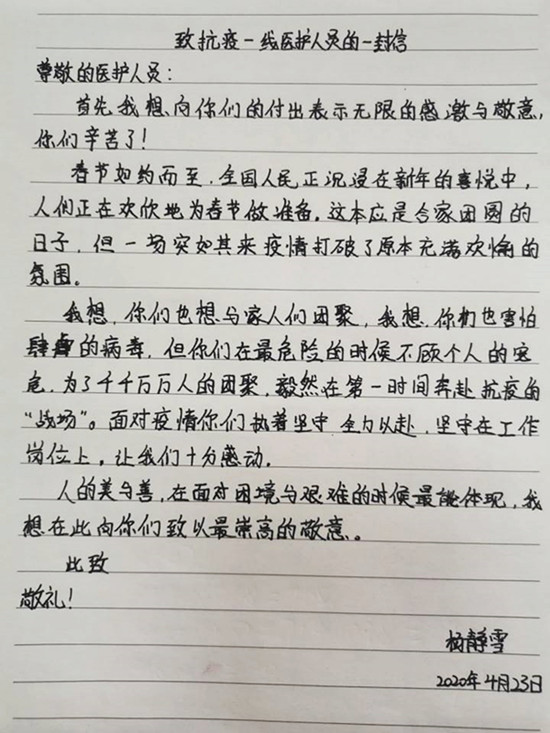 致抗疫一线医护人员的一封信
尊敬的医护人员：
首先我想向你们的付出表示无限的感激与敬意，
你们辛苦了！
春节如约而至，全国人民正沉浸在新年的喜悦中，
人们正在欢欣地为春节做准备。这本应是合家团圆的
日子，但一场突如其来疫情打破了原本充满欢愉的
氛围。
我想，你们也想与家人们团聚，我想，你们也害怕
肆虐的病毒，但你们在最危险的时候不顾个人的安
危，为了千千万万人的团聚，毅然在第一时间奔赴抗疫的
“战场”。面对疫情你们执着坚守，全力以赴，坚守在工作
岗位上，让我们十分感动。
人的美与善，在面对困境与艰难的时候最能体现，我
想在此向你们致以最崇高的敬意。
此致
敬礼！
杨静雪
2020年4月23日